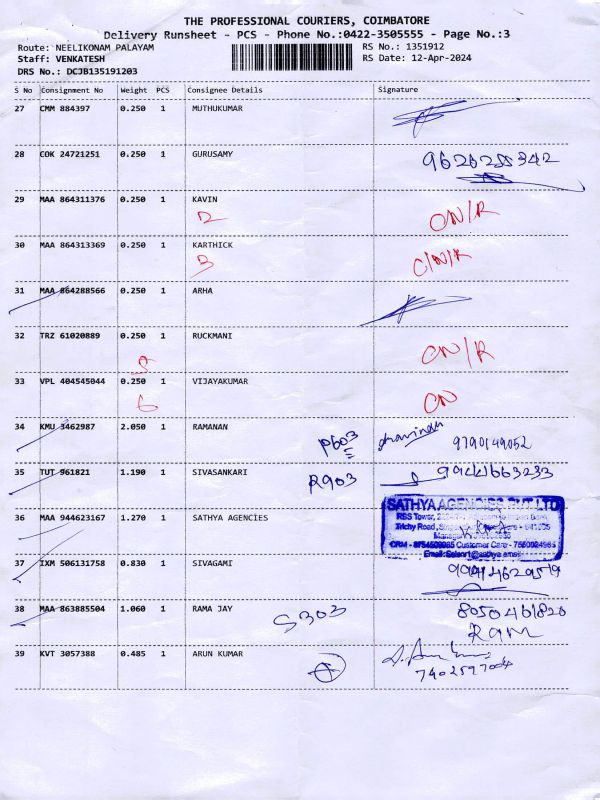 THE PROFESSIONAL COURIERS, COIMBATORE
Delivery Runsheet - PCS - Phone No.:0422-3505555 - Page No.:3
Route: NEELIKONAM PALAYAM RS No.: 1351912
Staff: VENKATESH RS Date: 12-Apr-2024
DRS No.: DCJB135191203
S No Consignment No Weight PCS Consignee Details Signature
27 CMM 884397 0.250 1 MUTHUKUMAR
28 COK 24721251 0.250 1 GURUSAMY 9626255342
29 MAA 864311376 0.250 1 KAVIN
ON/R
30 MAA 864313369 0.250 1 KARTHICK
3 C/N/R
31 MAA 864288566 0.250 1 ARHA
32 TRZ 61020889 0.250 1 RUCKMANI
5 ON/R
33 VPL 404545044 0.250 1 VIJAYAKUMAR
6 ON
34 KMU 3462987 2.050 1 RAMANAN
P603 9790149052
35 TUT 961821 1.190 1 SIVASANKARI
R903 9944663233
36 MAA 944623167 1.270 1 SATHYA AGENCIES
SATHYA AGENCIES PVT LTD
RSS Tower,
Trichy Road,
CRM - Customer Care -
37 IXM 506131758 0.830 1 SIVAGAMI
38 MAA 863885504 1.060 1 RAMA JAY
S303 8050461820
RAM
39 KVT 3057388 0.485 1 ARUN KUMAR
7402597004